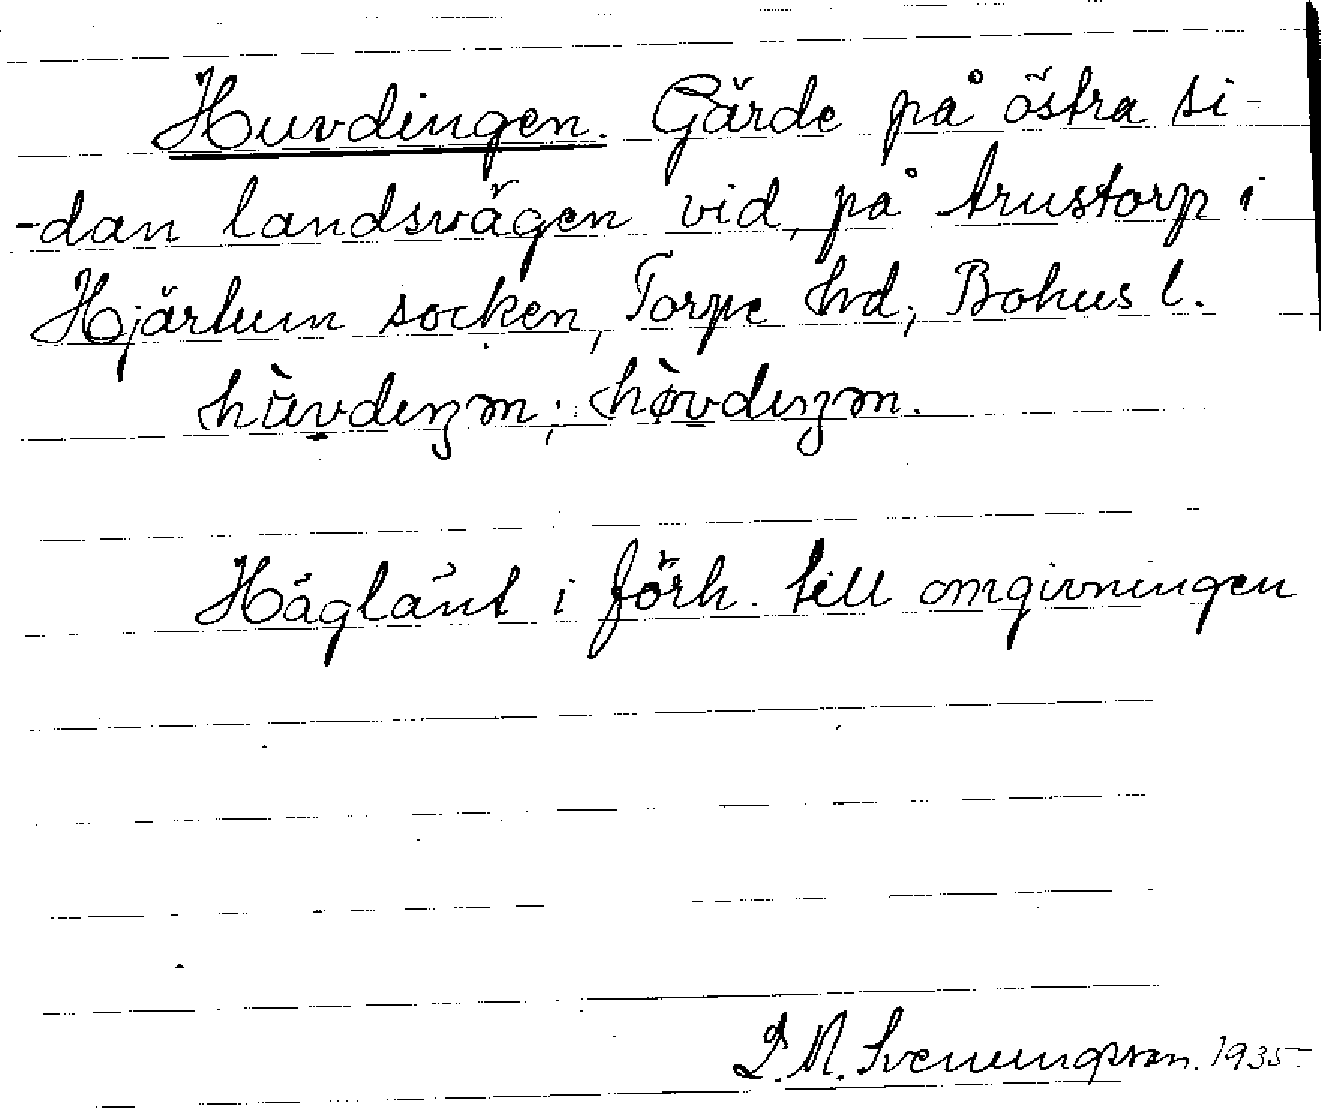 Huvdingen. Gärde på östra si-
-dan landsvägen vid, på trustorp i
Hjärtum socken, Torpe hd, Bohus l.
hùvdeŋən; hòvdeŋən.
Högländt i förh. till omgivningen
1935